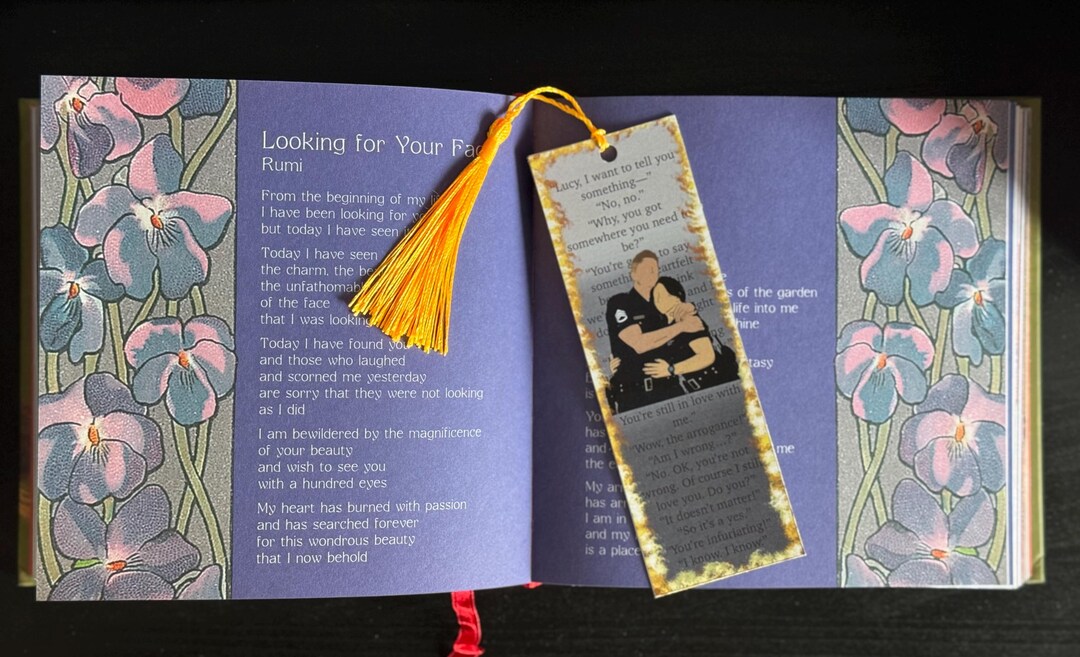 Looking for Your Fac
Rumi
From the beginning of my
I have been looking for
but today I have seen
Today I have seen
the charm, the be
the unfathomabl
of the face
that I was looking
Today I have found you
and those who laughed
and scorned me yesterday
are sorry that they were not looking
as I did
I am bewildered by the magnificence
of your beauty
and wish to see you
with a hundred eyes
My heart has burned with passion
and has searched forever
for this wondrous beauty
that I now behold
s of the garden
life into me
hine
tasy
is
Yo
has
and me
the e
My ar
has ar
I am in
and my
is a place
Lucy, I want to tell you
something—"
"No, no."
"Why, you got
somewhere you need to
be?"
"You're to say
someth artfelt
b ink
we and
do ght
ng.
"You're still in love with
me."
"Wow, the arrogance!"
"Am I wrong...?"
"No. OK, you're not
wrong. Of course I still
love you. Do you?"
"It doesn't matter!"
"So it's a yes."
"You're infuriating!"
"I know. I know."